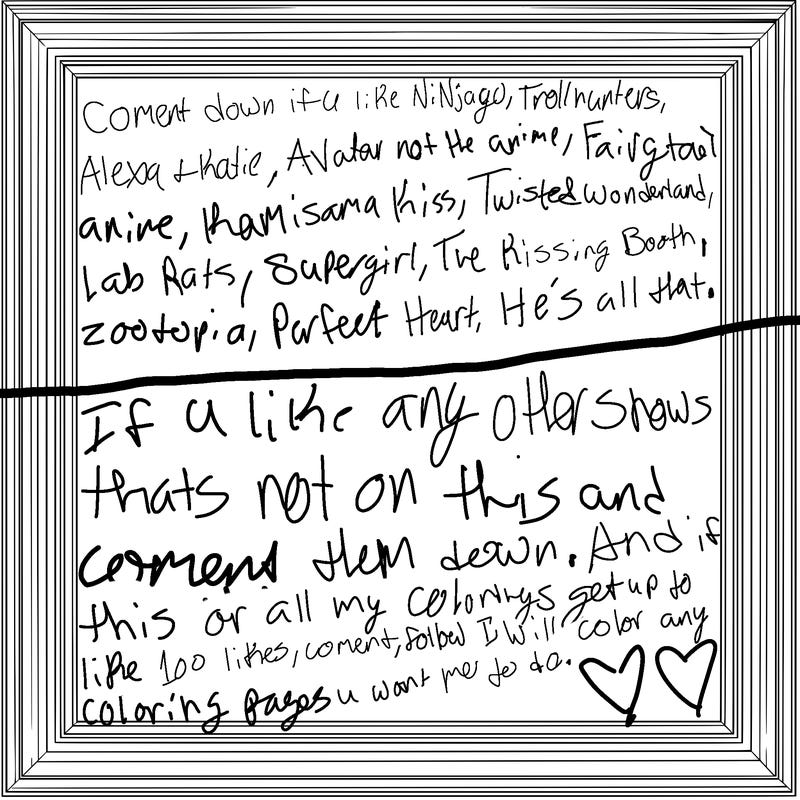 Coment down if u like NiNjago, Trollhunters,
Alexa + Katie, Avatar not the anime, Fairytail
anime, Kamisama Kiss, Twisted wonderland,
Lab Rats, Supergirl, The Kissing Booth,
zootopia, Perfect Heart, He's all that.
If u like any other shows
thats not on this and
coment them down. And if
this or all my colorings get up to
like 100 likes, coment, follow I will color any
coloring pages u want me to do.